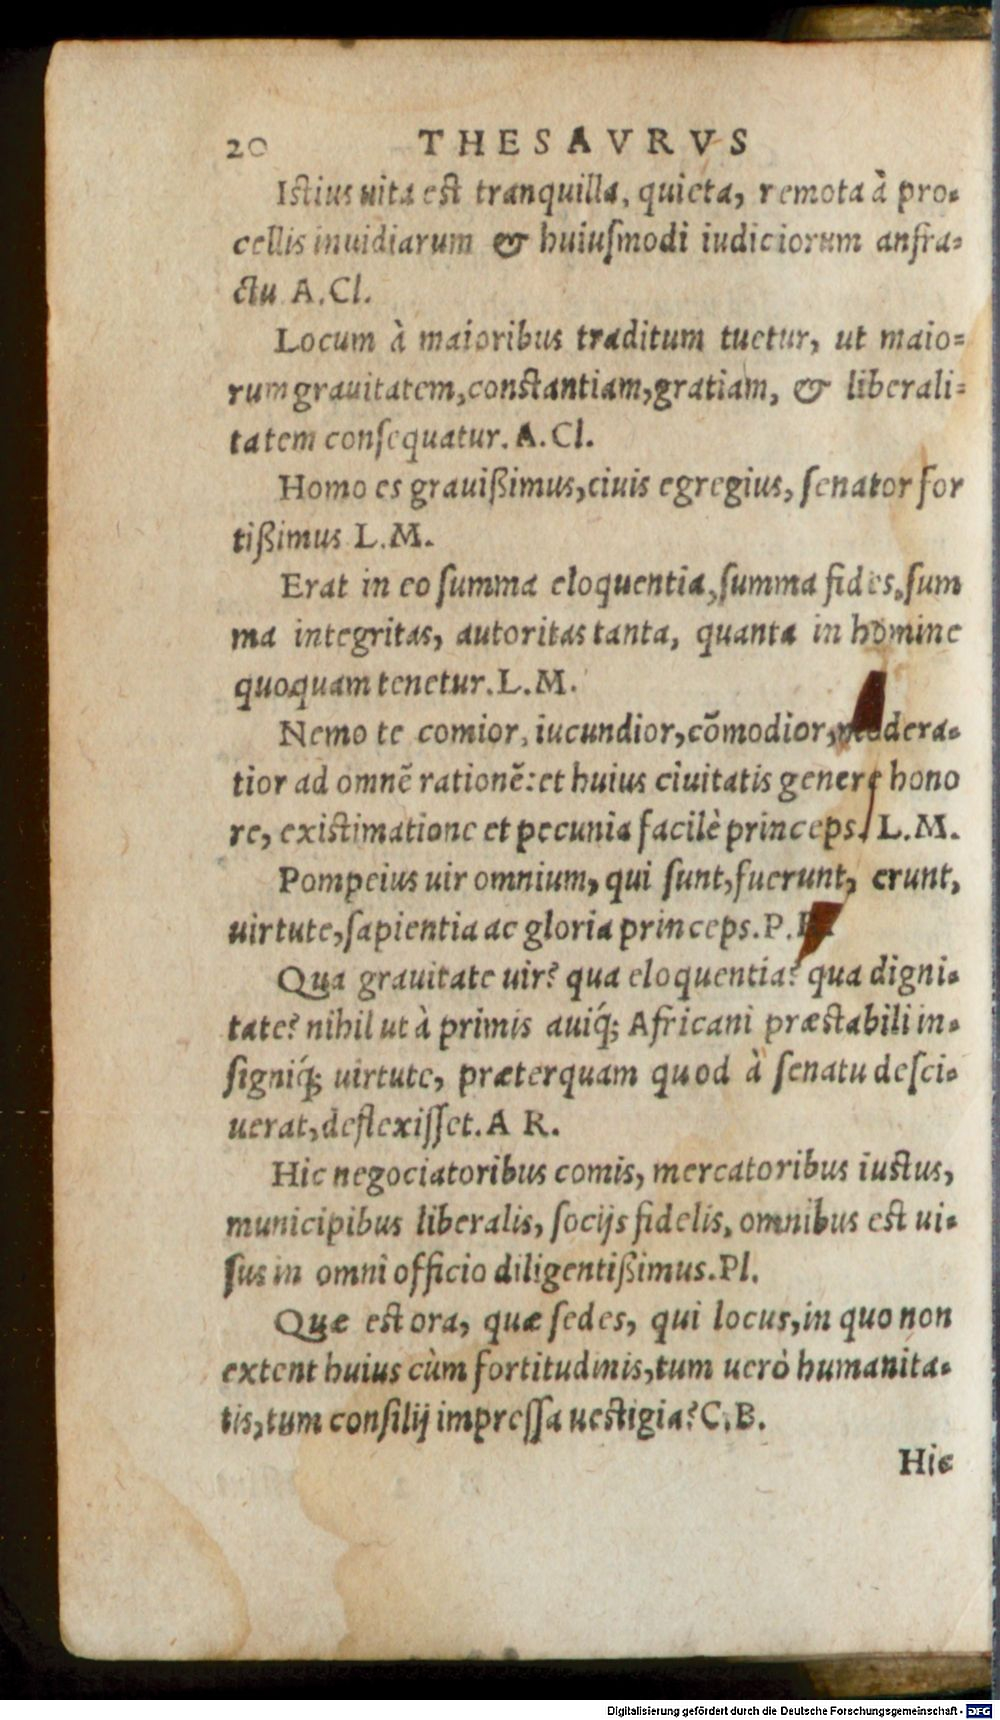 20 THESAVRVS
Istius uita est tranquilla, quieta, remota à pro-
cellis inuidiarum & huiusmodi iudiciorum anfra-
ctu A.Cl.
Locum à maioribus traditum tuetur, ut maio-
rum grauitatem, constantiam, gratiam, & liberali-
tatem consequatur. A.Cl.
Homo es grauißimus, ciuis egregius, senator for
tißimus L.M.
Erat in eo summa eloquentia, summa fides, sum
ma integritas, autoritas tanta, quanta in homine
quoquam tenetur. L.M.
Nemo te comior, iucundior, cōmodior, modera-
tior ad omnē rationē: et huius ciuitatis genere hono
re, existimatione et pecunia facilè princeps. L.M.
Pompeius uir omnium, qui sunt, fuerunt, erunt,
uirtute, sapientia ac gloria princeps. P.
Qua grauitate uir? qua eloquentia? qua digni-
tate? nihil ut à primis auiq́; Africani præstabili in-
signiq́; uirtute, præterquam quod à senatu desci-
uerat, deflexisset. A R.
Hic negociatoribus comis, mercatoribus iustus,
municipibus liberalis, socijs fidelis, omnibus est ui-
sus in omni officio diligentißimus. Pl.
Quæ est ora, quæ sedes, qui locus, in quo non
extent huius cùm fortitudinis, tum uerò humanita-
tis, tum consilij impressa uestigia? C.B.
Hic
Digitalisierung gefördert durch die Deutsche Forschungsgemeinschaft - DFG